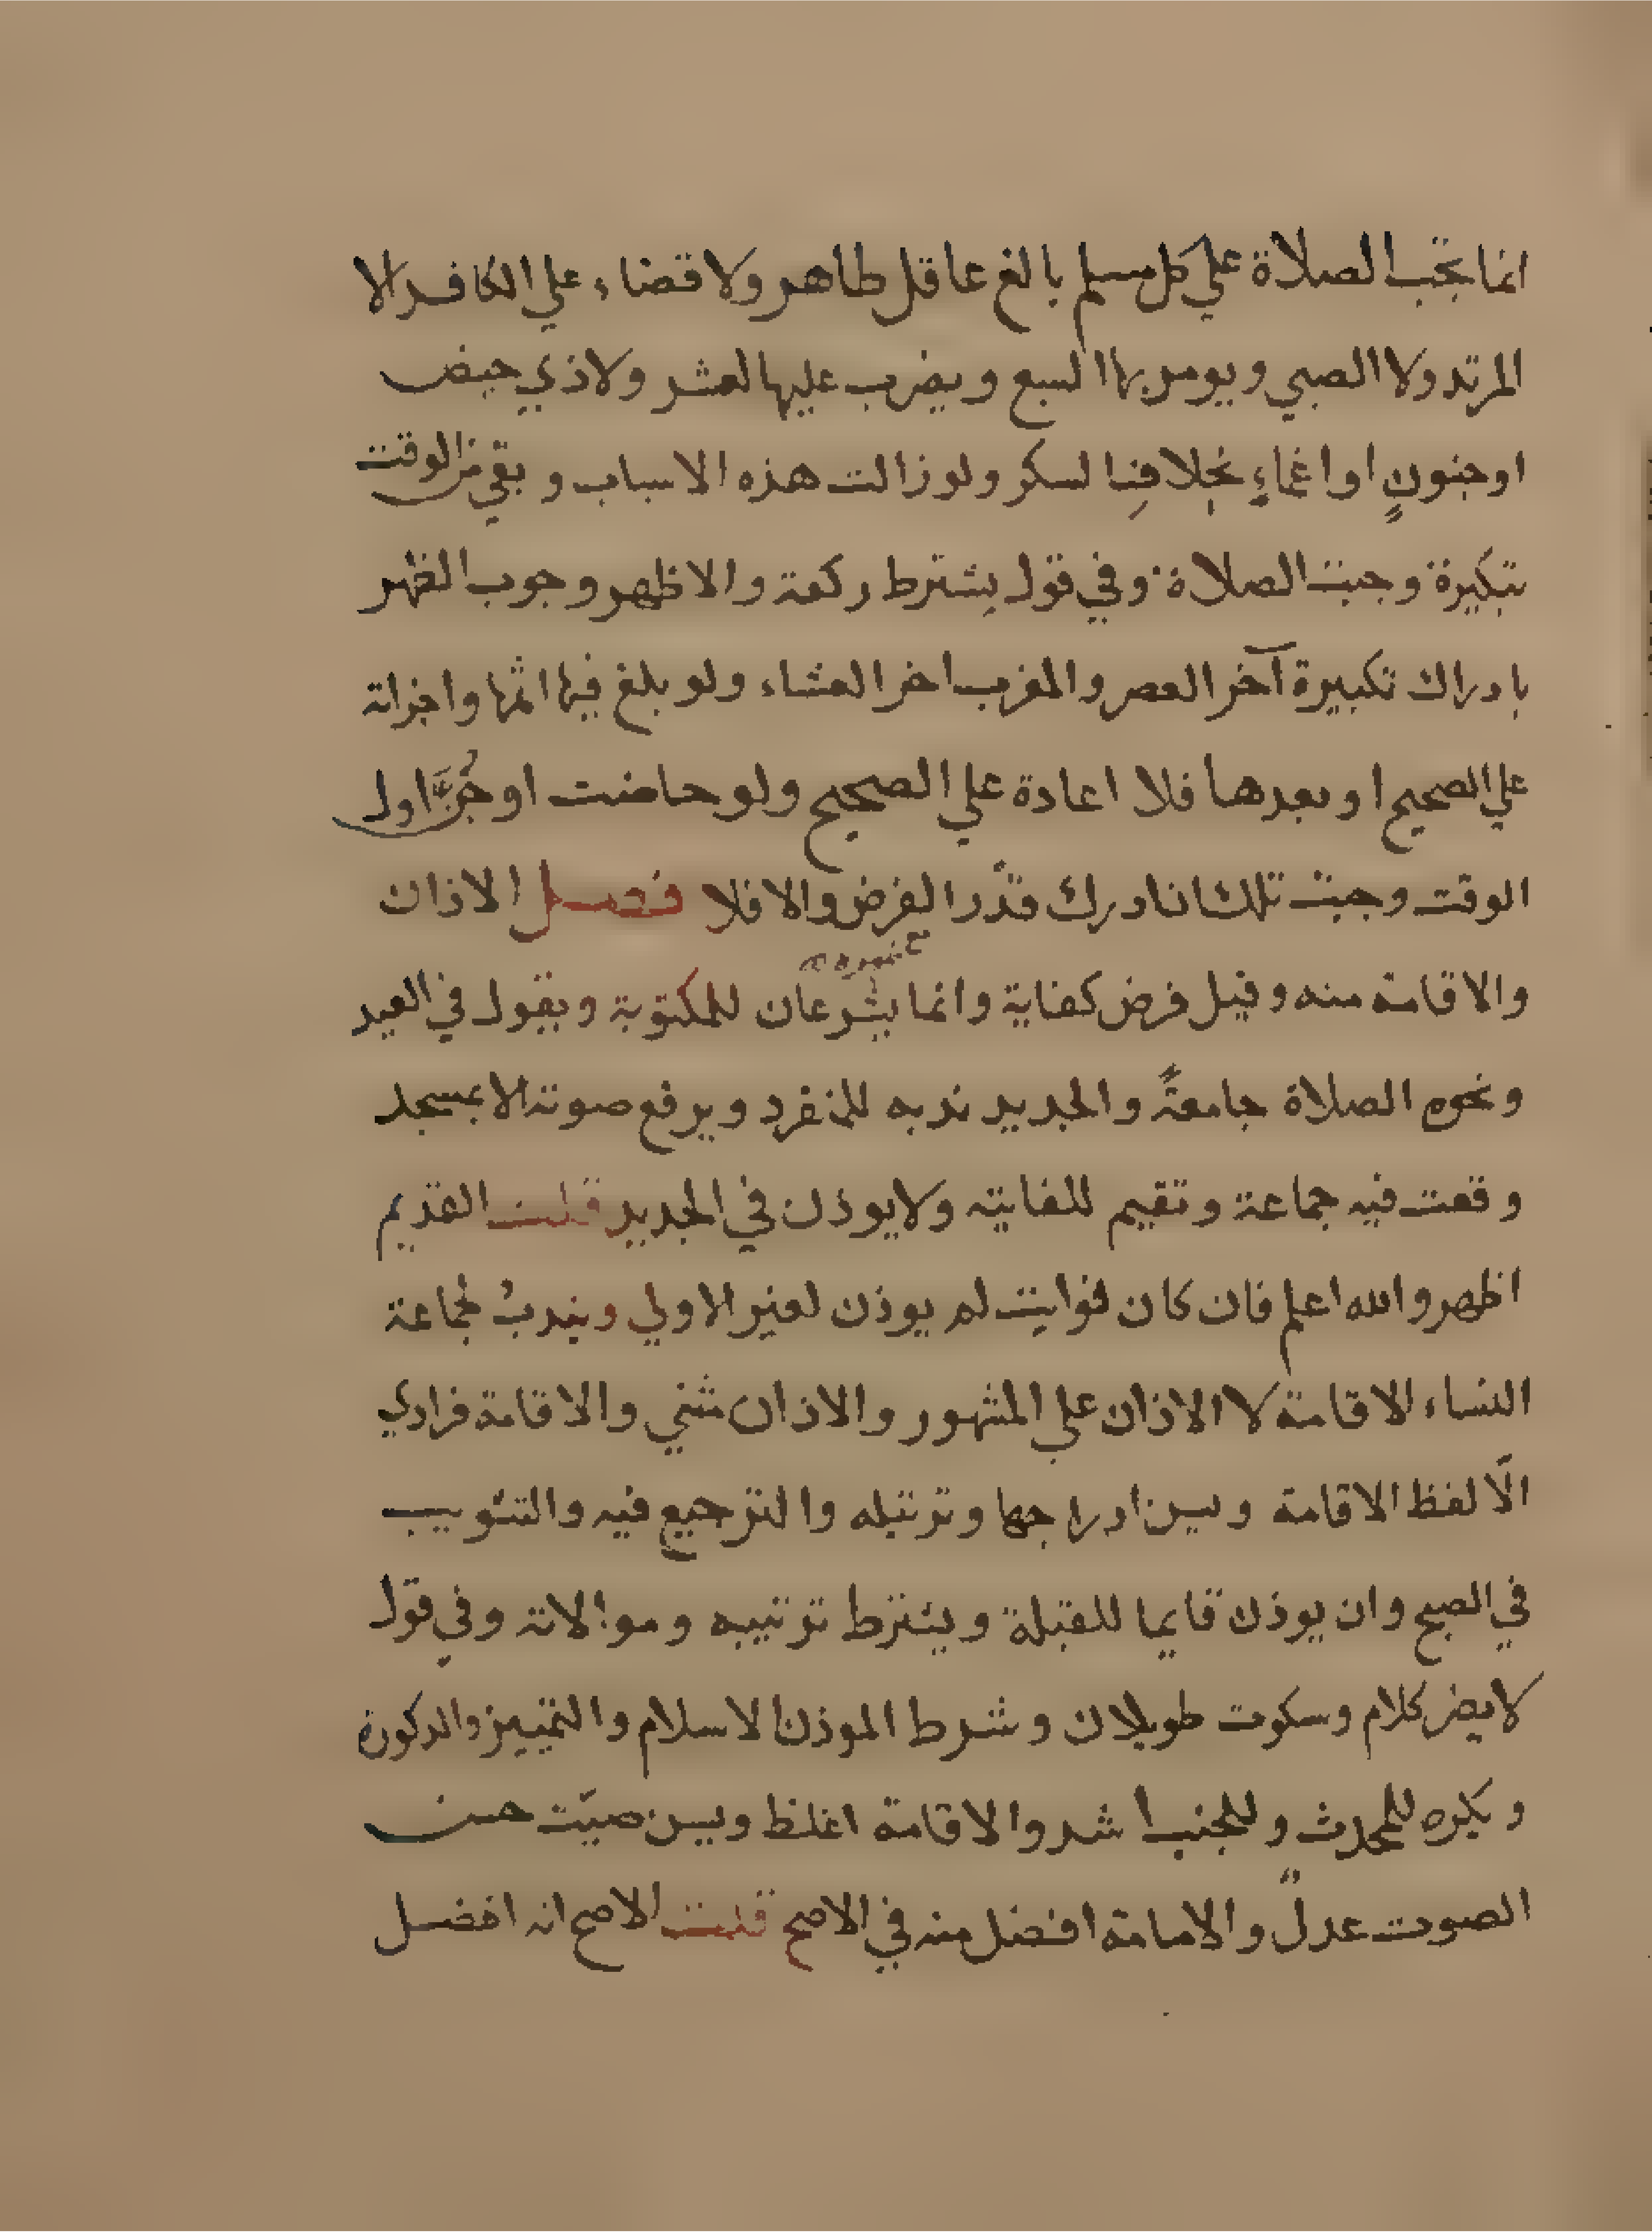 انما تجب الصلاة علي كل مسلم بالغ عاقل طاهر ولا قضاء علي الكافر الا
المرتد ولا الصبي ويومر بها السبع ويضرب عليها العشر ولا ذي حيض
او جنونٍ او اغماءٍ بخلاف السكر ولو زالت هذه الاسباب وبقي من الوقت
تكبيرة وجبت الصلاة وفي قول يشترط ركعة والاظهر وجوب الظهر
بادراك تكبيرة آخر العصر والمغرب اخر العشاء ولو بلغ فيها اتمها واجزاته
علي الصحيح او بعدها فلا اعادة علي الصحيح ولو حاضت او جُنَّ اول
الوقت وجبت تلك ان ادرك قدر الفرض والا فلا فصل الاذان
والاقامة سنه وقيل فرض كفاية وانما يشرعان للمكتوبة ويقول في العيد
ونحوه الصلاة جامعةً والجديد ندبه للمنفرد ويرفع صوته الا بمسجد
وقعت فيه جماعة وتقيم للفايته ولا يوذن في الجديد قلت القديم
اظهر والله اعلم فان كان فوايت لم يوذن لغير الاولي ويندبُ لجماعة
النساء الاقامة لا الاذان علي المشهور والاذان مثني والاقامة فرادي
الّا لفظ الاقامة ويسن ادراجها وترتيله والترجيع فيه والتثويب
في الصبح وان يوذن قايما للقبلة ويشترط ترتيبه وموالاته وفي قول
لا يضر كلام وسكوت طويلان وشرط الموذن الاسلام والتمييز والذكورة
ويكره للمحدث وللجنب اشد والاقامة اغلظ ويسن صيّت حسن
الصوت عدلٌ والامامة افضل منه في الاصح قلت الاصح انه افضل